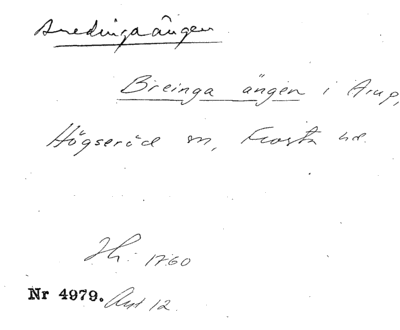 Anedingaängen
Breinga ängen i Arup,
Högseröd sn, Frosta hd.
Jb. 1760
Nr 4979. Avt 12